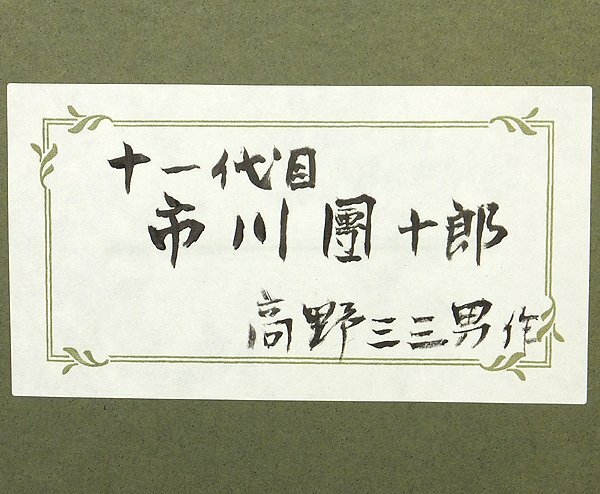 十一代目
市川團十郎
高野三三男作